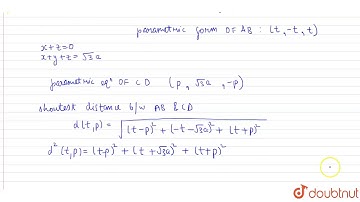 parametric form OF AB : (t, -t, t)
x+z=0
x+y+z = √3a
parametric eqⁿ OF CD (p, √3a, -p)
shortest distance b/w AB & CD
d(t,p) = √((t-p)² + (-t-√3a)² + (t+p)²)
d²(t,p) = (t-p)² + (t+√3a)² + (t+p)²
doubtnut